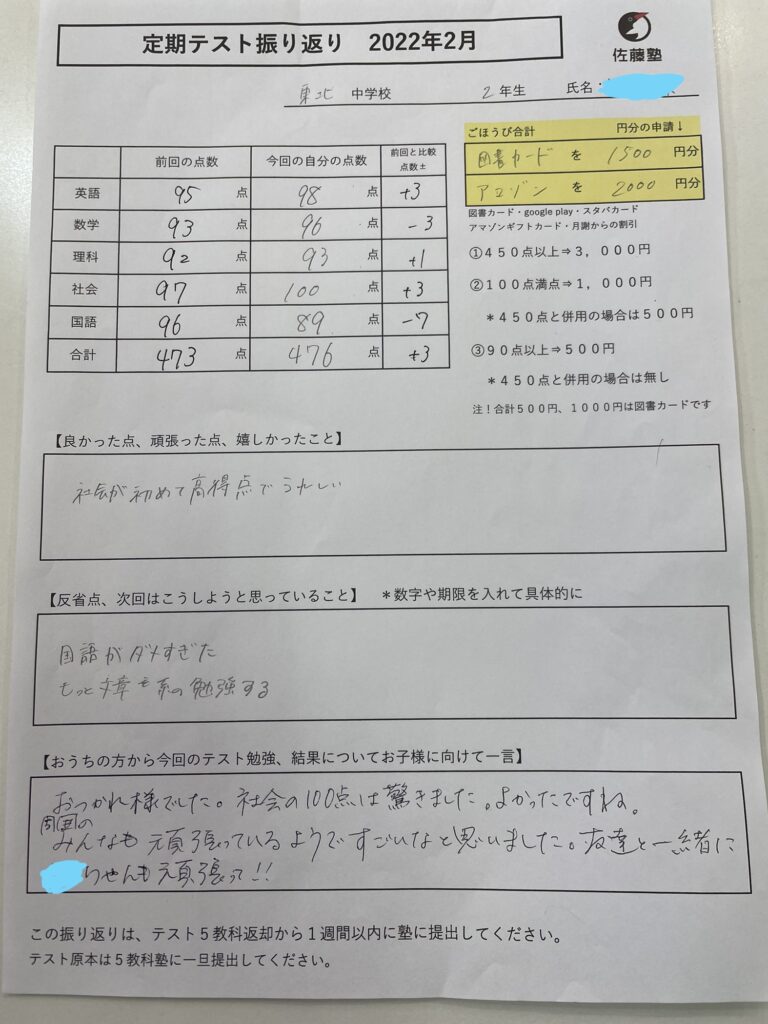 定期テスト振り返り 2022年2月
佐藤塾
東北 中学校 2 年生 氏名:
ごほうび合計 円分の申請↓
図書カード を 1500 円分
アマゾン を 2000 円分
図書カード・google play・スタバカード
アマゾンギフトカード・月謝からの割引
①450点以上⇒3,000円
②100点満点⇒1,000円
*450点と併用の場合は500円
③90点以上⇒500円
*450点と併用の場合は無し
注!合計500円、1000円は図書カードです
前回の点数 今回の自分の点数 前回と比較点数±
英語 95 点 98 点 +3
数学 93 点 96 点 -3
理科 92 点 93 点 +1
社会 97 点 100 点 +3
国語 96 点 89 点 -7
合計 473 点 476 点 +3
【良かった点、頑張った点、嬉しかったこと】
社会が初めて高得点でうれしい
【反省点、次回はこうしようと思っていること】 *数字や期限を入れて具体的に
国語がダメすぎた
もっと文章 系の勉強する
【おうちの方から今回のテスト勉強、結果についてお子様に向けて一言】
おつかれ様でした。社会の100点は驚きました。よかったですね。
周囲の
みんなも頑張っているようですごいなと思いました。友達と一緒に
ちゃんも頑張って!!
この振り返りは、テスト5教科返却から1週間以内に塾に提出してください。
テスト原本は5教科塾に一旦提出してください。